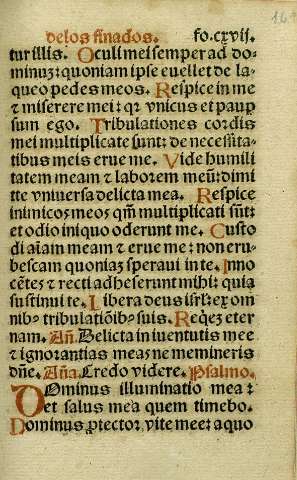 delos finados. fo.cxvij.
tur illis. Oculi mei semper ad do-
minuz: quoniam ipse euellet de la-
queo pedes meos. Respice in me
⁊ miserere mei: qꝛ vnicus et paup
sum ego. Tribulationes cordis
mei multiplicate sunt: de necessita-
tibus meis erue me. Vide humili
tatem meam ⁊ laborem meū: dimi
tte vniuersa delicta mea. Respice
inimicos meos qm̄ multiplicati sūt:
et odio iniquo oderunt me. Custo
di aīam meam ⁊ erue me: non eru-
bescam quoniaz speraui in te. Inno
cētes ⁊ recti adheserunt mihi: quia
sustinui te. Libera deus isrl: ex om
nibꝰ tribulatiōibꝰ suis. Reqez eter
nam. Añ. Delicta iuuentutis mee
⁊ ignorantias meas ne memineris
dñe. Aña. Credo videre. Psalmo.
Dominus illuminatio mea:
et salus mea quem timebo.
Dominus ꝓtector vite mee: a quo